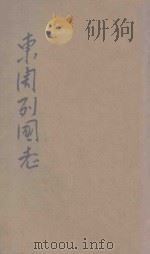 研拘
東周列國志
mtoou.info